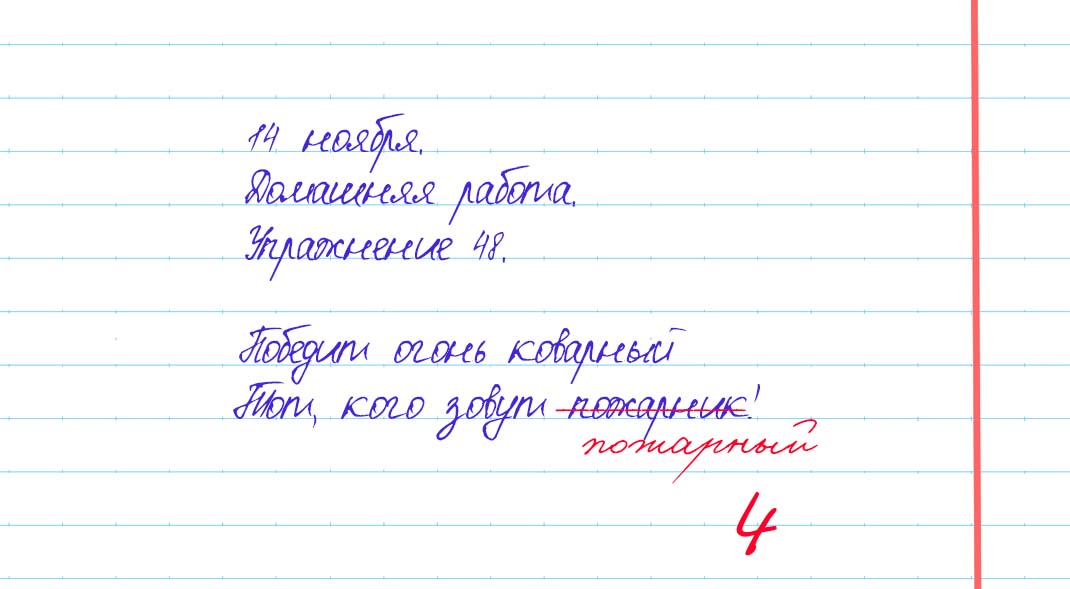 14 ноября.
Домашняя работа.
Упражнение 48.
Победит огонь коварный
Тот, кого зовут пожарник!
пожарный
4